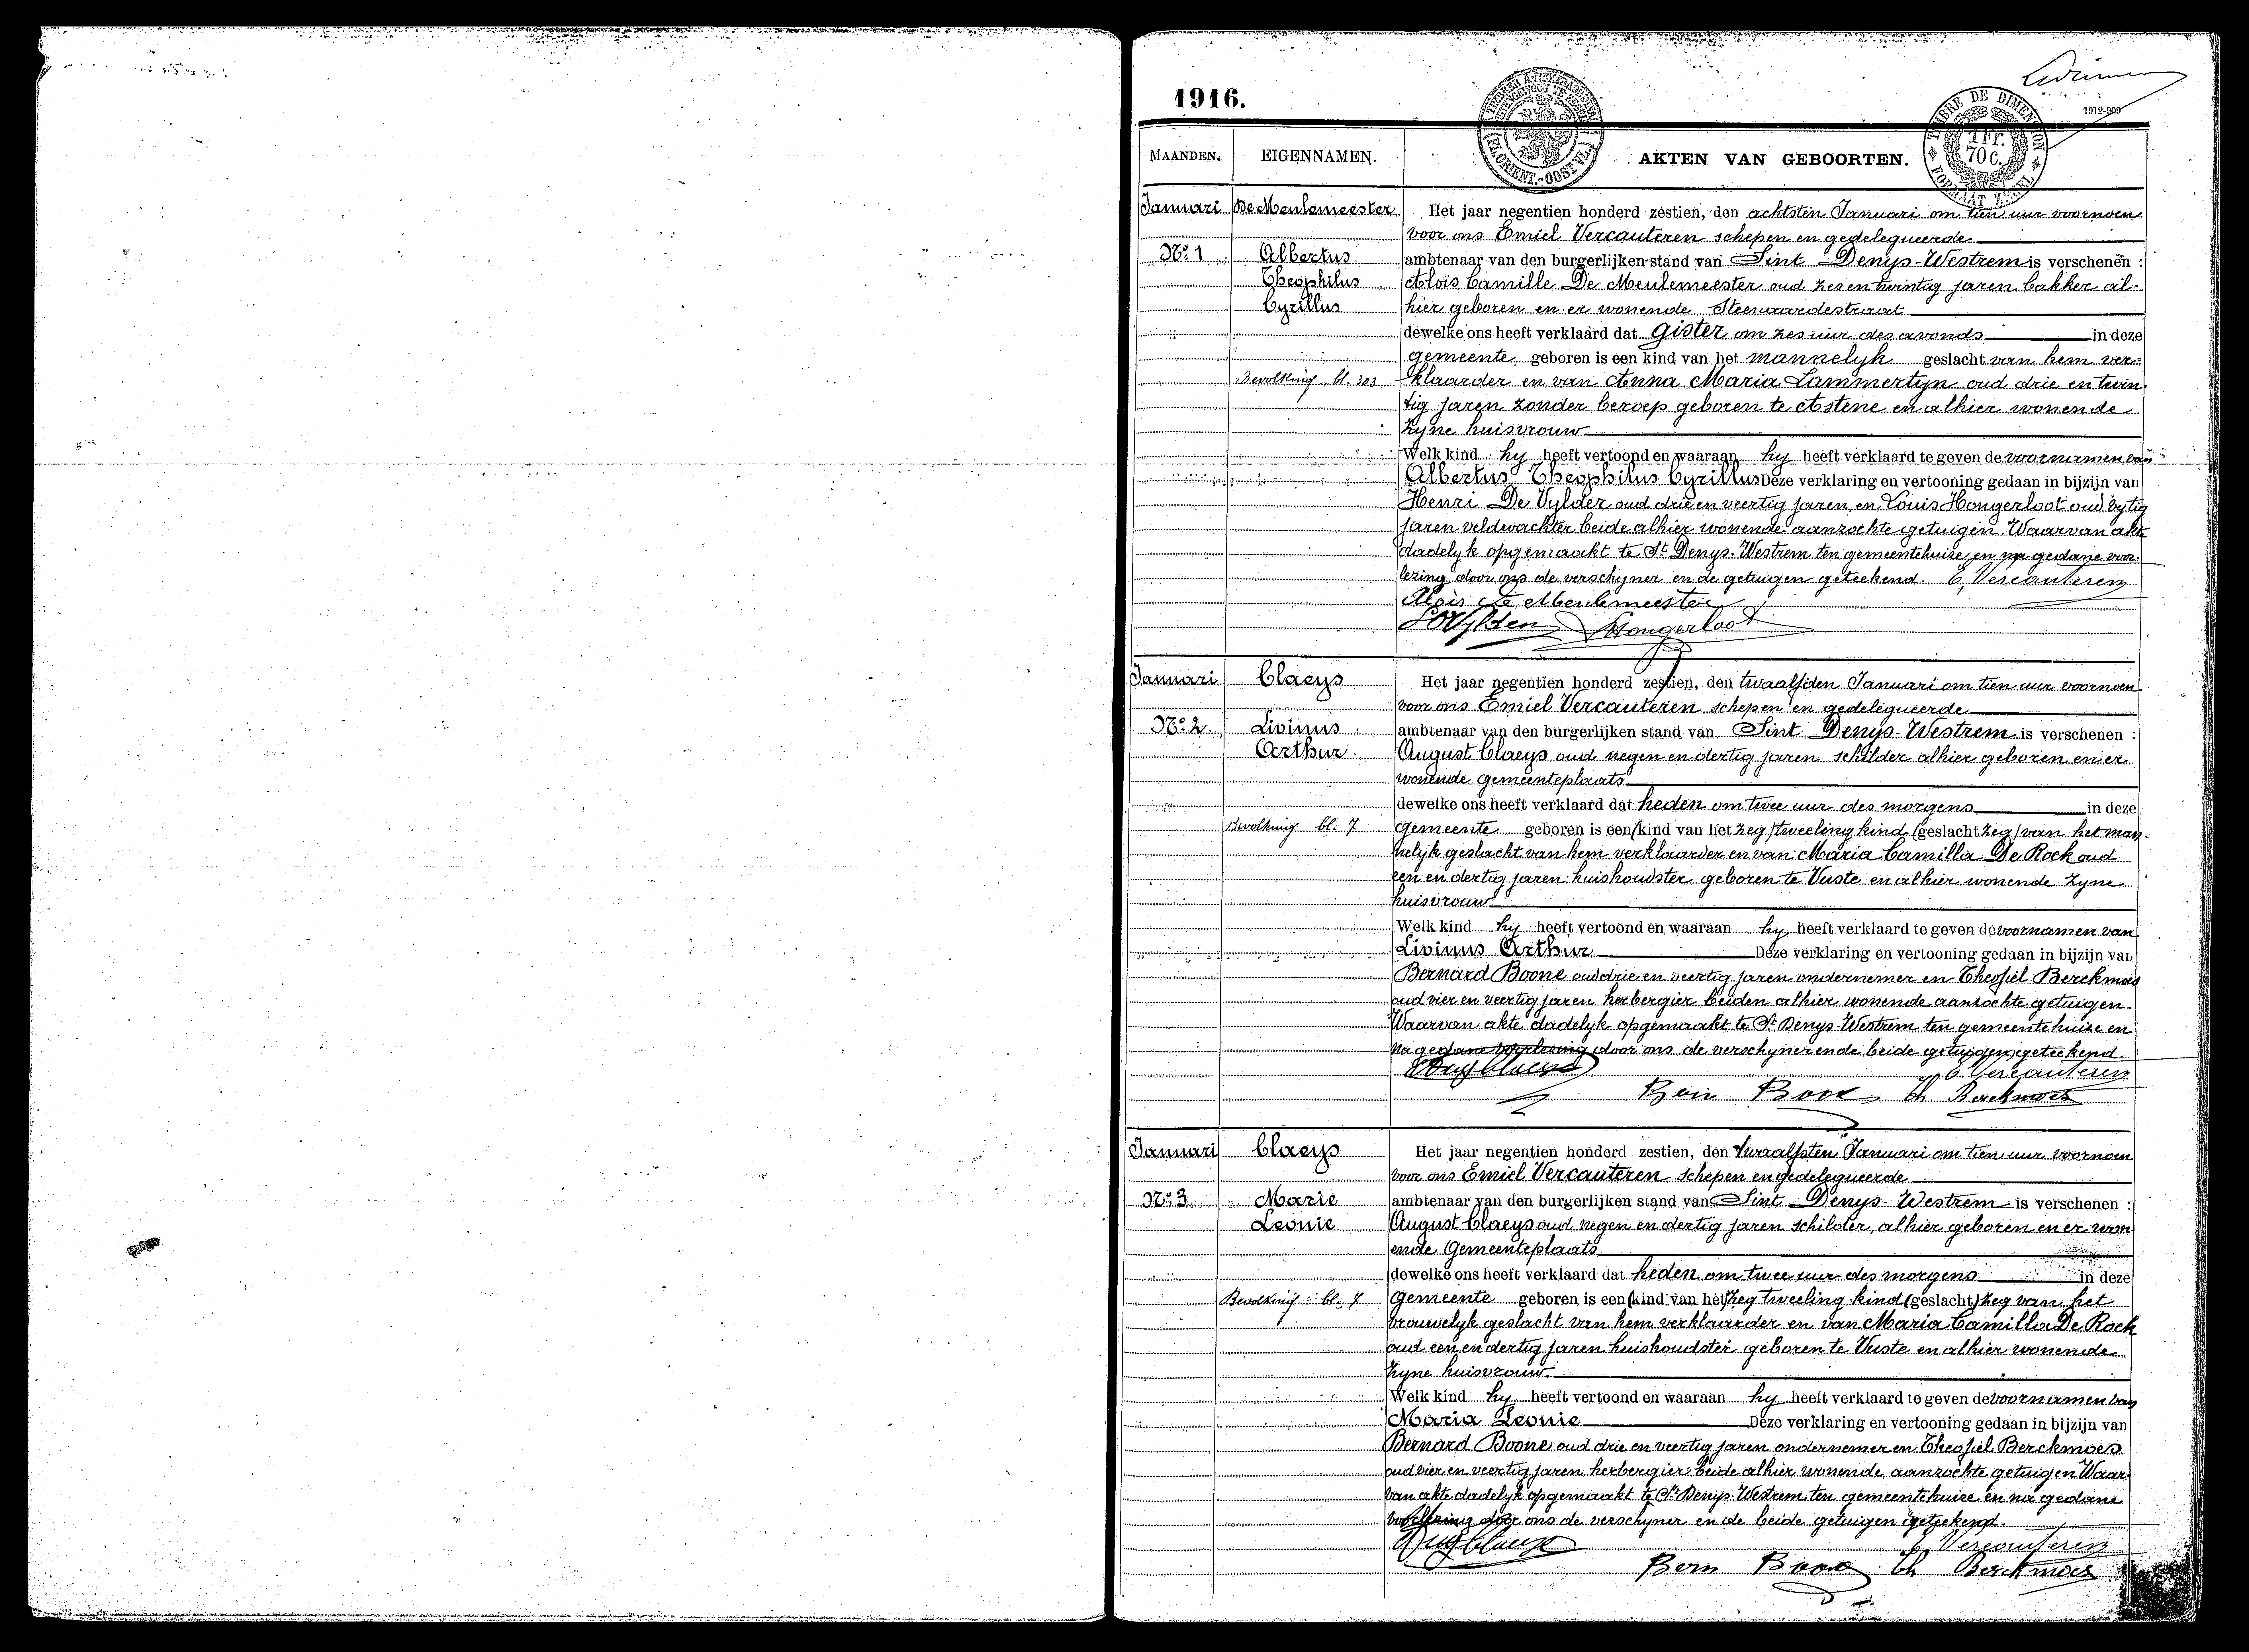 1916.
1912-909
TIMBRE DE DIMENSION
1 Fr. 70 C.
MAANDEN. EIGENNAMEN. AKTEN VAN GEBOORTEN.
Januari De Meulemeester Het jaar negentien honderd zestien, den achtsten Januari om tien uur voornoen
voor ons Emiel Vercauteren schepen en gedelegueerde
No. 1 Albertus ambtenaar van den burgerlijken stand van Sint Denys-Westrem is verschenen :
Theophilus Aloïs Camille De Meulemeester oud zes en twintig jaren bakker al-
Cyrillus hier geboren en er wonende Steenaardestraat
dewelke ons heeft verklaard dat gister om zes uur des avonds in deze
gemeente geboren is een kind van het mannelyk geslacht van hem ver-
Bevolking bl. 303 klaarder en van Anna Maria Lammertyn oud drie en twin
tig jaren zonder beroep geboren te Astene en alhier wonende
zyne huisvrouw
Welk kind hy heeft vertoond en waaraan hy heeft verklaard te geven de voornamen van
Albertus Theophilus Cyrillus Deze verklaring en vertooning gedaan in bijzijn van
Henri De Vylder oud drie en veertig jaren en Louis Hongerloot oud vyftig
jaren veldwachter beide alhier wonende aanzochte getuigen. Waarvan akte
dadelyk opgemaakt te St Denys-Westrem ten gemeentehuize en na gedane voor-
lezing door ons de verschyner en de getuigen geteekend. E. Vercauteren
Aloïs De Meulemeester
Hongerloot
Januari Claeys Het jaar negentien honderd zestien, den twaalfden Januari om tien uur voornoen
voor ons Emiel Vercauteren schepen en gedelegueerde
No. 2 Livinus ambtenaar van den burgerlijken stand van Sint Denys-Westrem is verschenen :
Arthur August Claeys oud negen en dertig jaren schilder alhier geboren en er
wonende gemeenteplaats
dewelke ons heeft verklaard dat heden om twee uur des morgens in deze
Bevolking bl. 7 gemeente geboren is een (kind van het zeg) tweeling kind (geslacht zeg) van het man-
nelyk geslacht van hem verklaarder en van Maria Camilla De Rock oud
een en dertig jaren huishoudster geboren te Vuste en alhier wonende zyne
huisvrouw
Welk kind hy heeft vertoond en waaraan hy heeft verklaard te geven de voornamen van
Livinus Arthur Deze verklaring en vertooning gedaan in bijzijn van
Bernard Boone oud drie en veertig jaren ondernemer en Theofiel Berckmoes
oud vier en veertig jaren herbergier beiden alhier wonende aanzochte getuigen.
Waarvan akte dadelyk opgemaakt te St Denys-Westrem ten gemeentehuize en
na gedane voorlezing door ons de verschyner en de beide getuigen geteekend.
Aug Claeys E. Vercauteren
Bern Boone Th Berckmoes
Januari Claeys Het jaar negentien honderd zestien, den twaalfsten Januari om tien uur voornoen
voor ons Emiel Vercauteren schepen en gedelegueerde
No. 3 Marie ambtenaar van den burgerlijken stand van Sint Denys-Westrem is verschenen :
Leonie August Claeys oud negen en dertig jaren schilder, alhier geboren en er won
ende Gemeenteplaats
dewelke ons heeft verklaard dat heden om twee uur des morgens in deze
Bevolking bl. 7 gemeente geboren is een (kind van het) zeg tweeling kind (geslacht) zeg van het
vrouwelyk geslacht van hem verklaarder en van Maria Camilla De Rock
oud een en dertig jaren huishoudster geboren te Vuste en alhier wonende
zyne huisvrouw.
Welk kind hy heeft vertoond en waaraan hy heeft verklaard te geven de voornamen van
Maria Leonie Deze verklaring en vertooning gedaan in bijzijn van
Bernard Boone oud drie en veertig jaren ondernemer en Theofiel Berckmoes
oud vier en veertig jaren herbergier beide alhier wonende aanzochte getuigen Waar-
van akte dadelyk opgemaakt te St Denys-Westrem ten gemeentehuize en na gedane
voorlezing door ons de verschyner en de beide getuigen geteekend.
Aug Claeys E. Vercauteren
Bern Boone Th Berckmoes